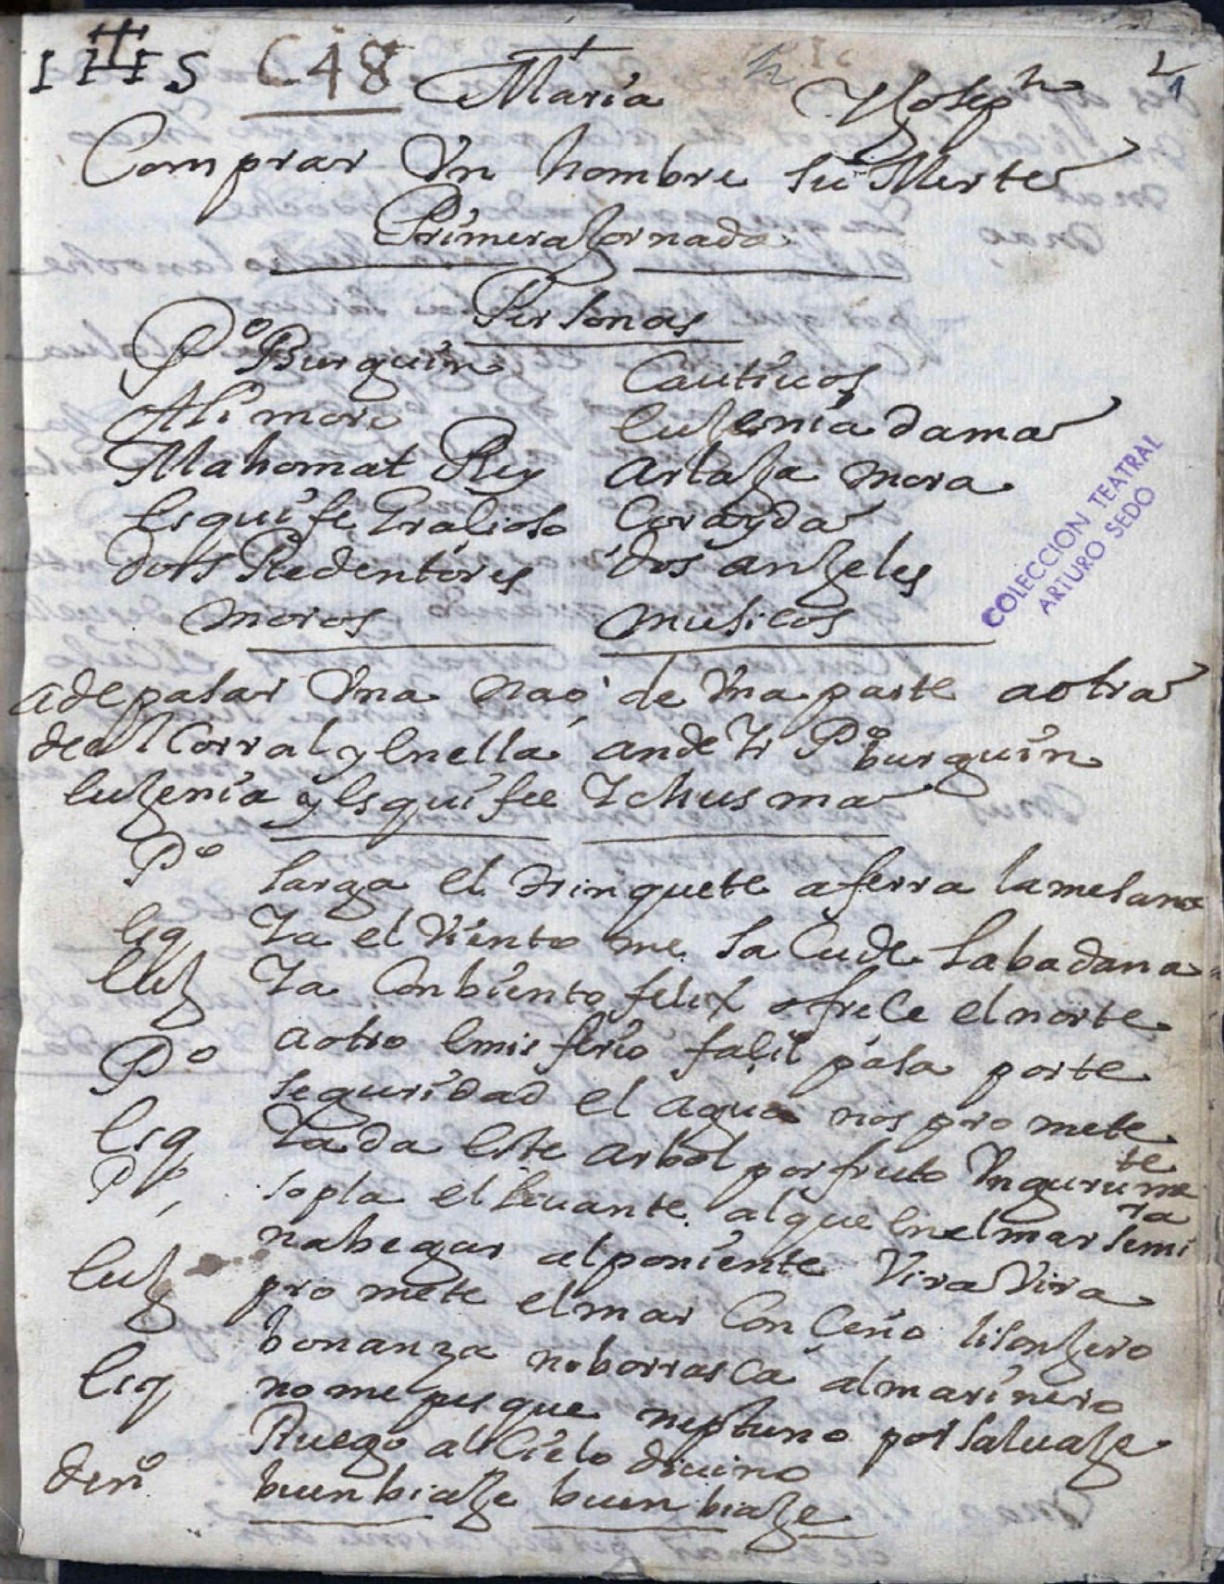 IHS C48 María Y Joseph 1
Comprar Vn hombre su Muerte
Primera Jornada
Personas
Pº Burguin Cautiuos
Ali moro euxenia dama
Mahomat Rey arlaxa mora
esquife Gracioso Corayda
dos Redentores dos anxeles
moros musicos
ade pasar Vna nao de Vna parte a otra
de el Corral y en ella an de Ir Pº burguin
euxenia y esquife I chusma
Pº larga el trinquete aferra la mesana
esq Ia el Viento me sacude la badana
eux Ia Con biento felix ofrece el norte
a otro emisferio facil pasaporte
Pº seguridad el agua nos promete
esq Ia da este arbol por fruto Vn gurumete
Pº sopla el leuante al que en el mar se mira
nabegar al poniente Vira Vira
eux promete el mar Con Ceño lisonxero
bonanza no borrasca al marinero
esq no me pesque neptuno por saluaxe
Ruego al Cielo diuino
denº buen biaxe buen biaxe
COLECCION TEATRAL
ARTURO SEDO